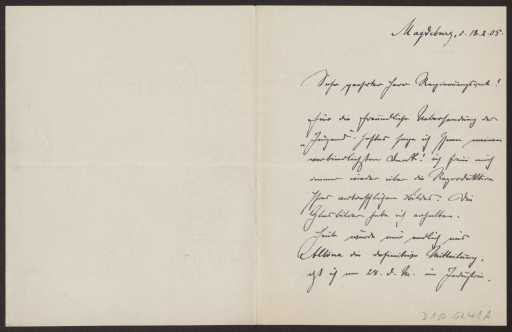 Magdeburg, d. 13.2.05.
Sehr geehrter Herr Regierungsrat!
Für die freundliche Uebersendung der
„Jugend"-Heftes sage ich Ihnen meinen
verbindlichsten Dank! ich freue mich
immer wieder über die Reproduktion
Ihres vortrefflichen Bildes. Die
habe ich erhalten.
Heute wurde mir endlich aus
Altona die definitive Mitteilung,
ich am 28. d. M. in